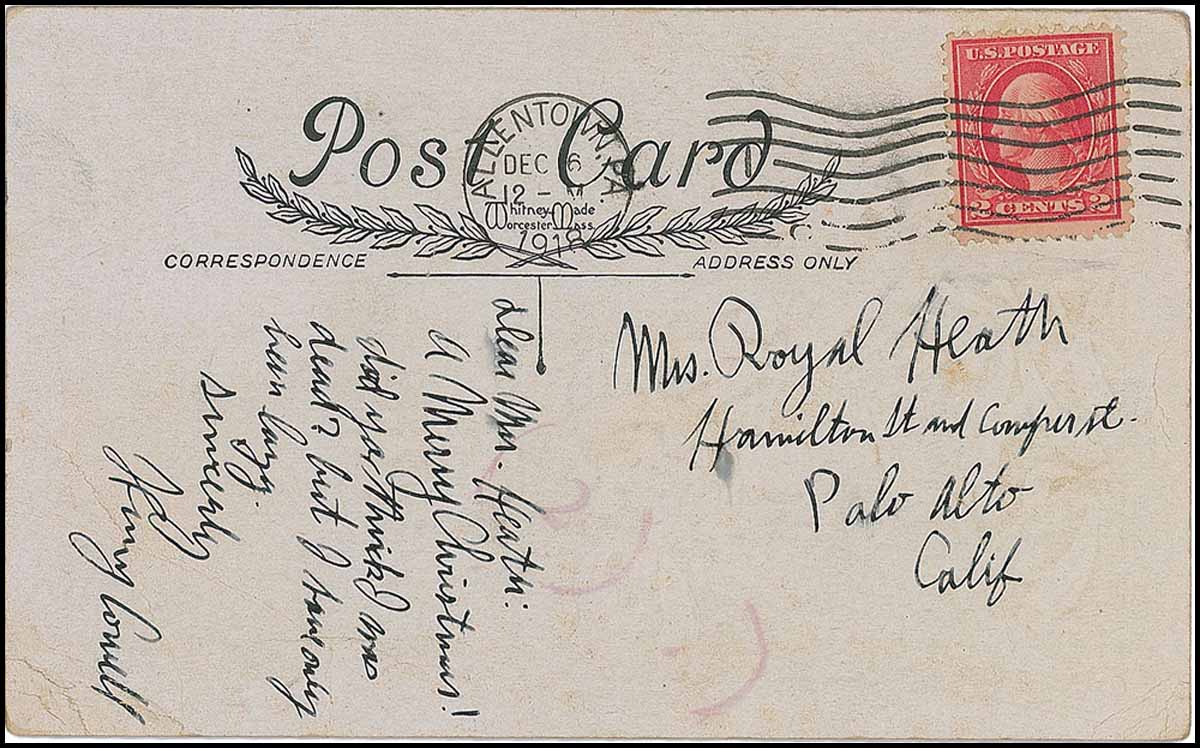 Post Card
ALLENTOWN, PA.
DEC 6
12 - M.
1918
Whitney Made
Worcester Mass.
U.S. POSTAGE
2 CENTS 2
CORRESPONDENCE
ADDRESS ONLY
Dear Mrs. Heath:
A Merry Christmas!
did you think I was
dead? but I have only
been lazy.
Sincerely
Henry Cowell
Mrs. Royal Heath
Hamilton St and Cowper st.
Palo Alto
Calif